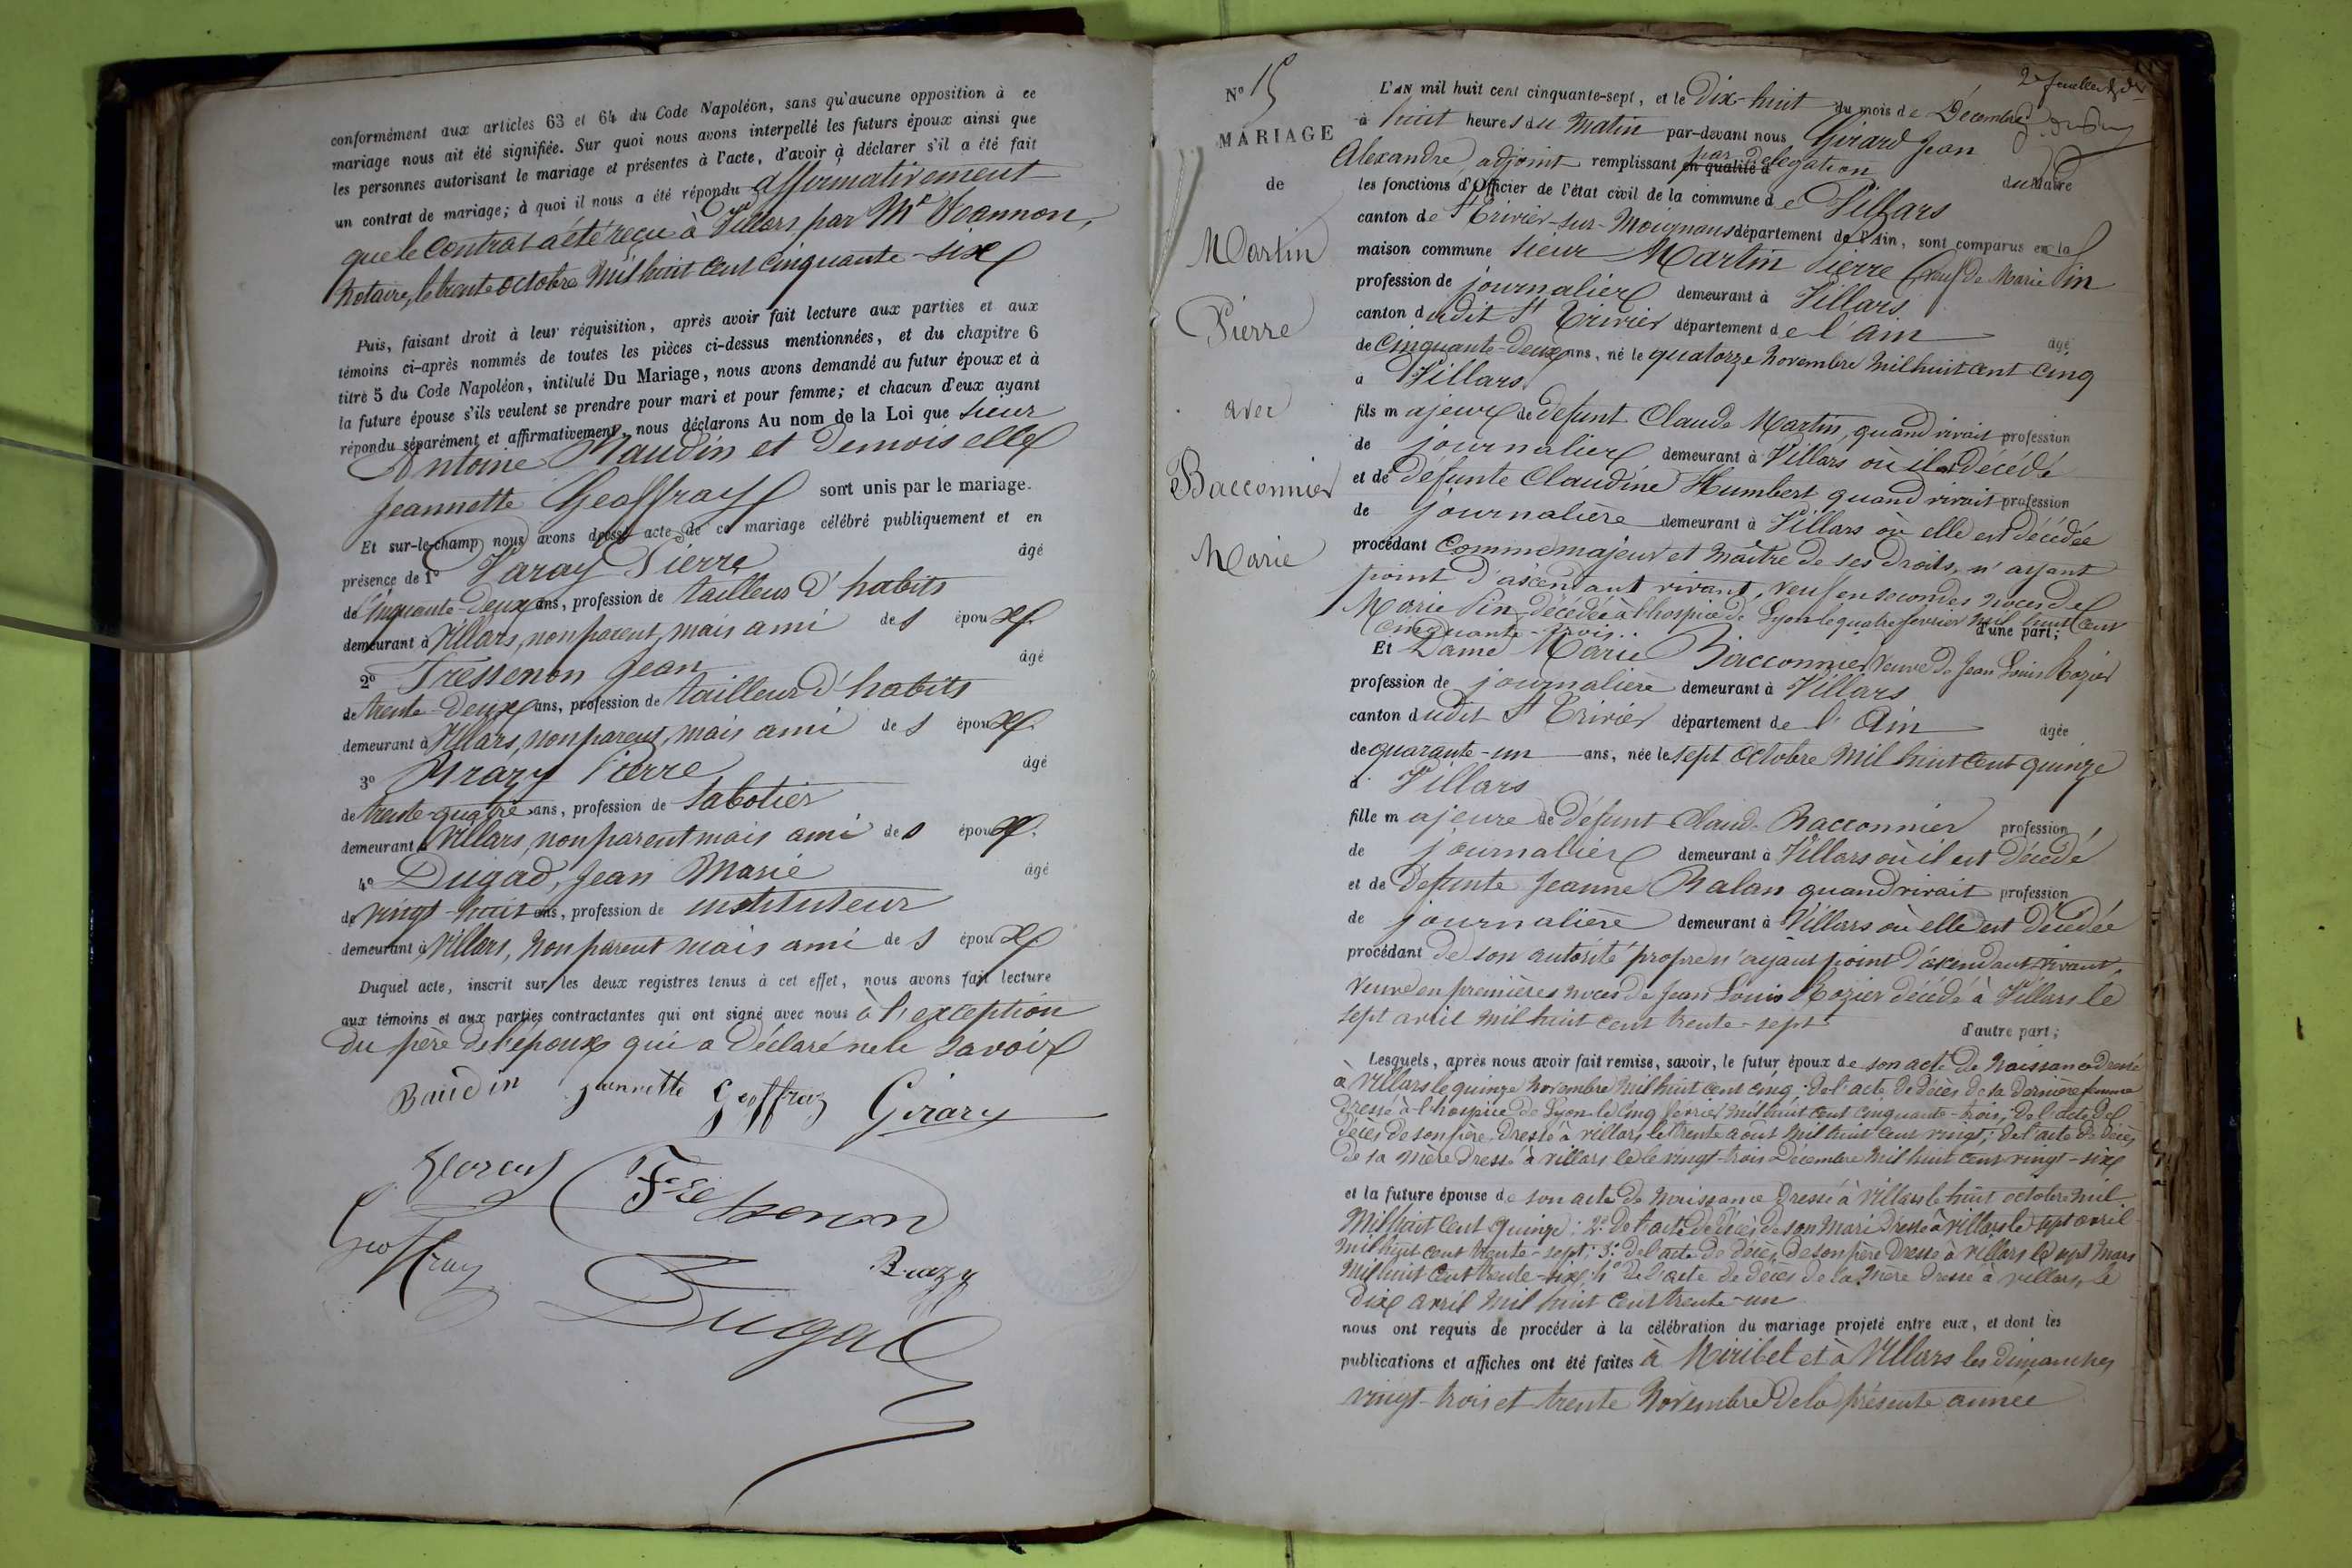 conformément aux articles 63 et 64 du Code Napoléon, sans qu'aucune opposition à ce
mariage nous ait été signifiée. Sur quoi nous avons interpellé les futurs époux ainsi que
les personnes autorisant le mariage et présentes à l'acte, d'avoir à déclarer s'il a été fait
un contrat de mariage; à quoi il nous a été répondu affirmativement
que le contrat a été reçu à Villars, par Me Jeannon,
notaire, le trente octobre mil huit cent cinquante-six
Puis, faisant droit à leur réquisition, après avoir fait lecture aux parties et aux
témoins ci-après nommés de toutes les pièces ci-dessus mentionnées, et du chapitre 6
titre 5 du Code Napoléon, intitulé Du Mariage, nous avons demandé au futur époux et à
la future épouse s'ils veulent se prendre pour mari et pour femme; et chacun d'eux ayant
répondu séparément et affirmativement, nous déclarons Au nom de la Loi que sieur
Antoine Baudin et demoiselle
Jeannette Geoffray sont unis par le mariage.
Et sur-le-champ nous avons dressé acte de ce mariage célébré publiquement et en
présence de 1º Varay Pierre âgé
de cinquante-deux ans, profession de tailleur d'habits
demeurant à Villars, non parent, mais ami des époux.
2º Fressenon Jean âgé
de trente-deux ans, profession de tailleur d'habits
demeurant à Villars, non parent, mais ami des époux.
3º Brazy Pierre âgé
de trente-quatre ans, profession de sabotier
demeurant à Villars, non parent mais ami des époux.
4º Dugad, Jean Marie âgé
de vingt-huit ans, profession de instituteur
demeurant à Villars, non parent mais ami des époux
Duquel acte, inscrit sur les deux registres tenus à cet effet, nous avons fait lecture
aux témoins et aux parties contractantes qui ont signé avec nous à l'exception
du père de l'époux qui a déclaré ne le savoir
Baudin Jeannette Geoffray Girard
Fressenon
Geoffray Brazy
Dugad
Nº 15
MARIAGE
de
Martin
Pierre
avec
Bacconnier
Marie
2e feuillet
L'AN mil huit cent cinquante-sept, et le dix-huit du mois de Décembre
à huit heures du matin par-devant nous Girard Jean
Alexandre adjoint remplissant en qualité d par délégation du Maire
les fonctions d'Officier de l'état civil de la commune de Villars
canton de St Trivier-sur-Moignans département de l'Ain, sont comparus en la
maison commune sieur Martin Pierre veuf de Marie Pin
profession de journalier demeurant à Villars
canton dudit St Trivier département de l'ain âgé
de cinquante-deux ans, né le quatorze novembre mil huit cent cinq
à Villars
fils majeur de défunt Claude Martin, quand vivait profession
de journalier demeurant à Villars où il est décédé
et de défunte Claudine Humbert quand vivait profession
de journalière demeurant à Villars où elle est décédée
procédant comme majeur et maître de ses droits, n'ayant
point d'ascendant vivant, veuf en secondes noces de
Marie Pin décédée à l'hospice de Lyon le quatre février mil huit cent
cinquante-trois. d'une part;
Et Dame Marie Bacconnier veuve de Jean Louis Rozier
profession de journalière demeurant à Villars
canton dudit St Trivier département de l'Ain âgée
de quarante-un ans, née le sept octobre mil huit cent quinze
à Villars
fille majeure de défunt Claude Bacconnier profession
de journalier demeurant à Villars où il est décédé
et de défunte Jeanne Balan quand vivait profession
de journalière demeurant à Villars où elle est décédée
procédant de son autorité propre n'ayant point d'ascendant vivant,
veuve en premières noces de Jean Louis Rozier décédé à Villars le
sept avril mil huit cent trente-sept d'autre part;
Lesquels, après nous avoir fait remise, savoir, le futur époux de son acte de naissance dressé
à Villars le quinze novembre mil huit cent cinq; de l'acte de décès de sa dernière femme
dressé à l'hospice de Lyon le cinq février mil huit cent cinquante-trois; de l'acte de
décès de son père, dressé à villars le trente août mil huit cent vingt; de l'acte de décès
de sa mère dressé à villars le le vingt-trois décembre mil huit cent vingt-six
et la future épouse de son acte de naissance dressé à Villars le huit octobre mil
mil huit cent quinze; 2º de l'acte de décès de son mari dressé à villars le sept avril
mil huit cent trente-sept; 3º de l'acte de décès de son père dressé à villars le sept mars
mil huit cent trente-six; 4º de l'acte de décès de la mère dressé à villars, le
dix avril mil huit cent trente-un
nous ont requis de procéder à la célébration du mariage projeté entre eux, et dont les
publications et affiches ont été faites à Miribel et à Villars les dimanches
vingt-trois et trente Novembre de la présente année